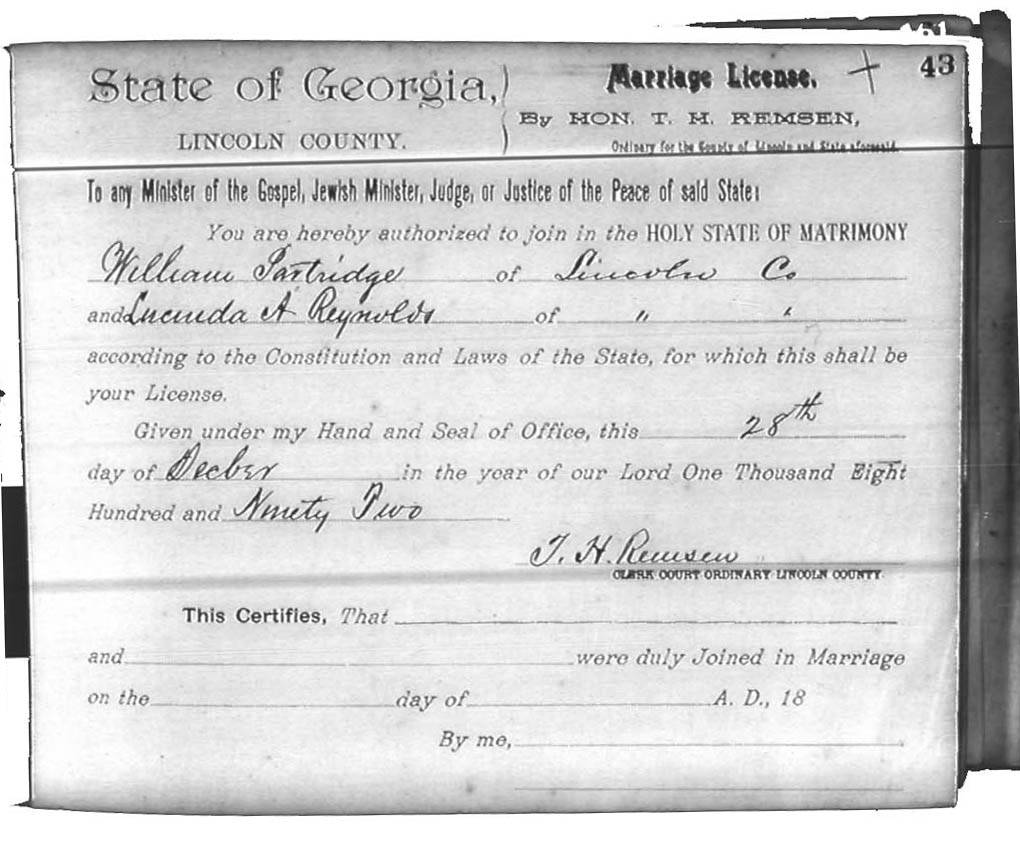 State of Georgia,
LINCOLN COUNTY.
Marriage License.
43
By HON. T. H. REMSEN,
Ordinary for the County of Lincoln and State aforesaid.
To any Minister of the Gospel, Jewish Minister, Judge, or Justice of the Peace of said State:
You are hereby authorized to join in the HOLY STATE OF MATRIMONY
William Partridge of Lincoln Co
and Lucinda A Reynolds of " "
according to the Constitution and Laws of the State, for which this shall be
your License.
Given under my Hand and Seal of Office, this 28th
day of Decber in the year of our Lord One Thousand Eight
Hundred and Ninety Two
T. H. Remsen
CLERK COURT ORDINARY LINCOLN COUNTY.
This Certifies, That
and were duly Joined in Marriage
on the day of A. D., 18
By me,